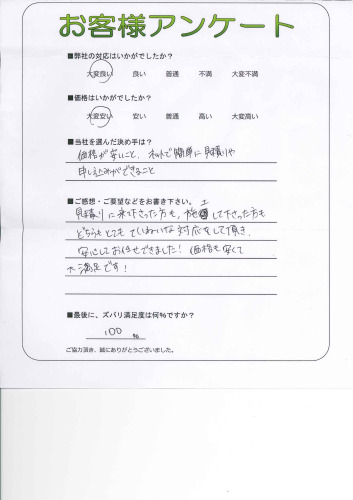 お客様アンケート
■弊社の対応はいかがでしたか？
大変良い 良い 普通 不満 大変不満
■価格はいかがでしたか？
大変安い 安い 普通 高い 大変高い
■当社を選んだ決め手は？
価格が安いこと、ネットで簡単に見積りや
申し込みができること
■ご感想・ご要望などをお書き下さい。
見積りに来て下さった方も、施工して下さった方も
どちらもとてもていねいな対応をして頂き、
安心してお任せできました！価格も安くて
大満足です！
■最後に、ズバリ満足度は何％ですか？
100 %
ご協力頂き、誠にありがとうございました。